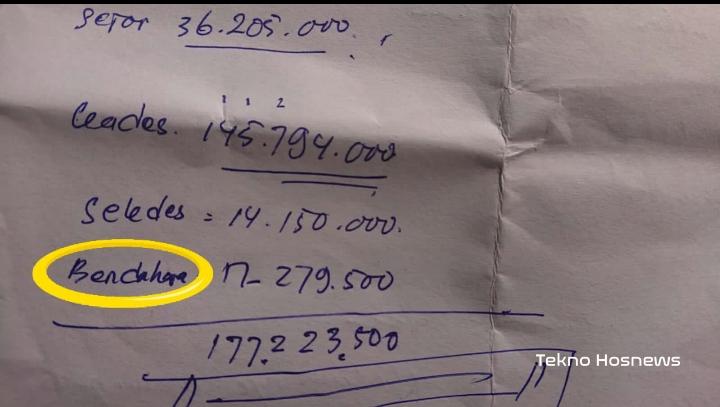 Setor 36.205.000
1 1 2
Kades. 145.794.000
Sekdes = 14.150.000.
Bendahara 17.279.500
177.223.500
Tekno Hosnews